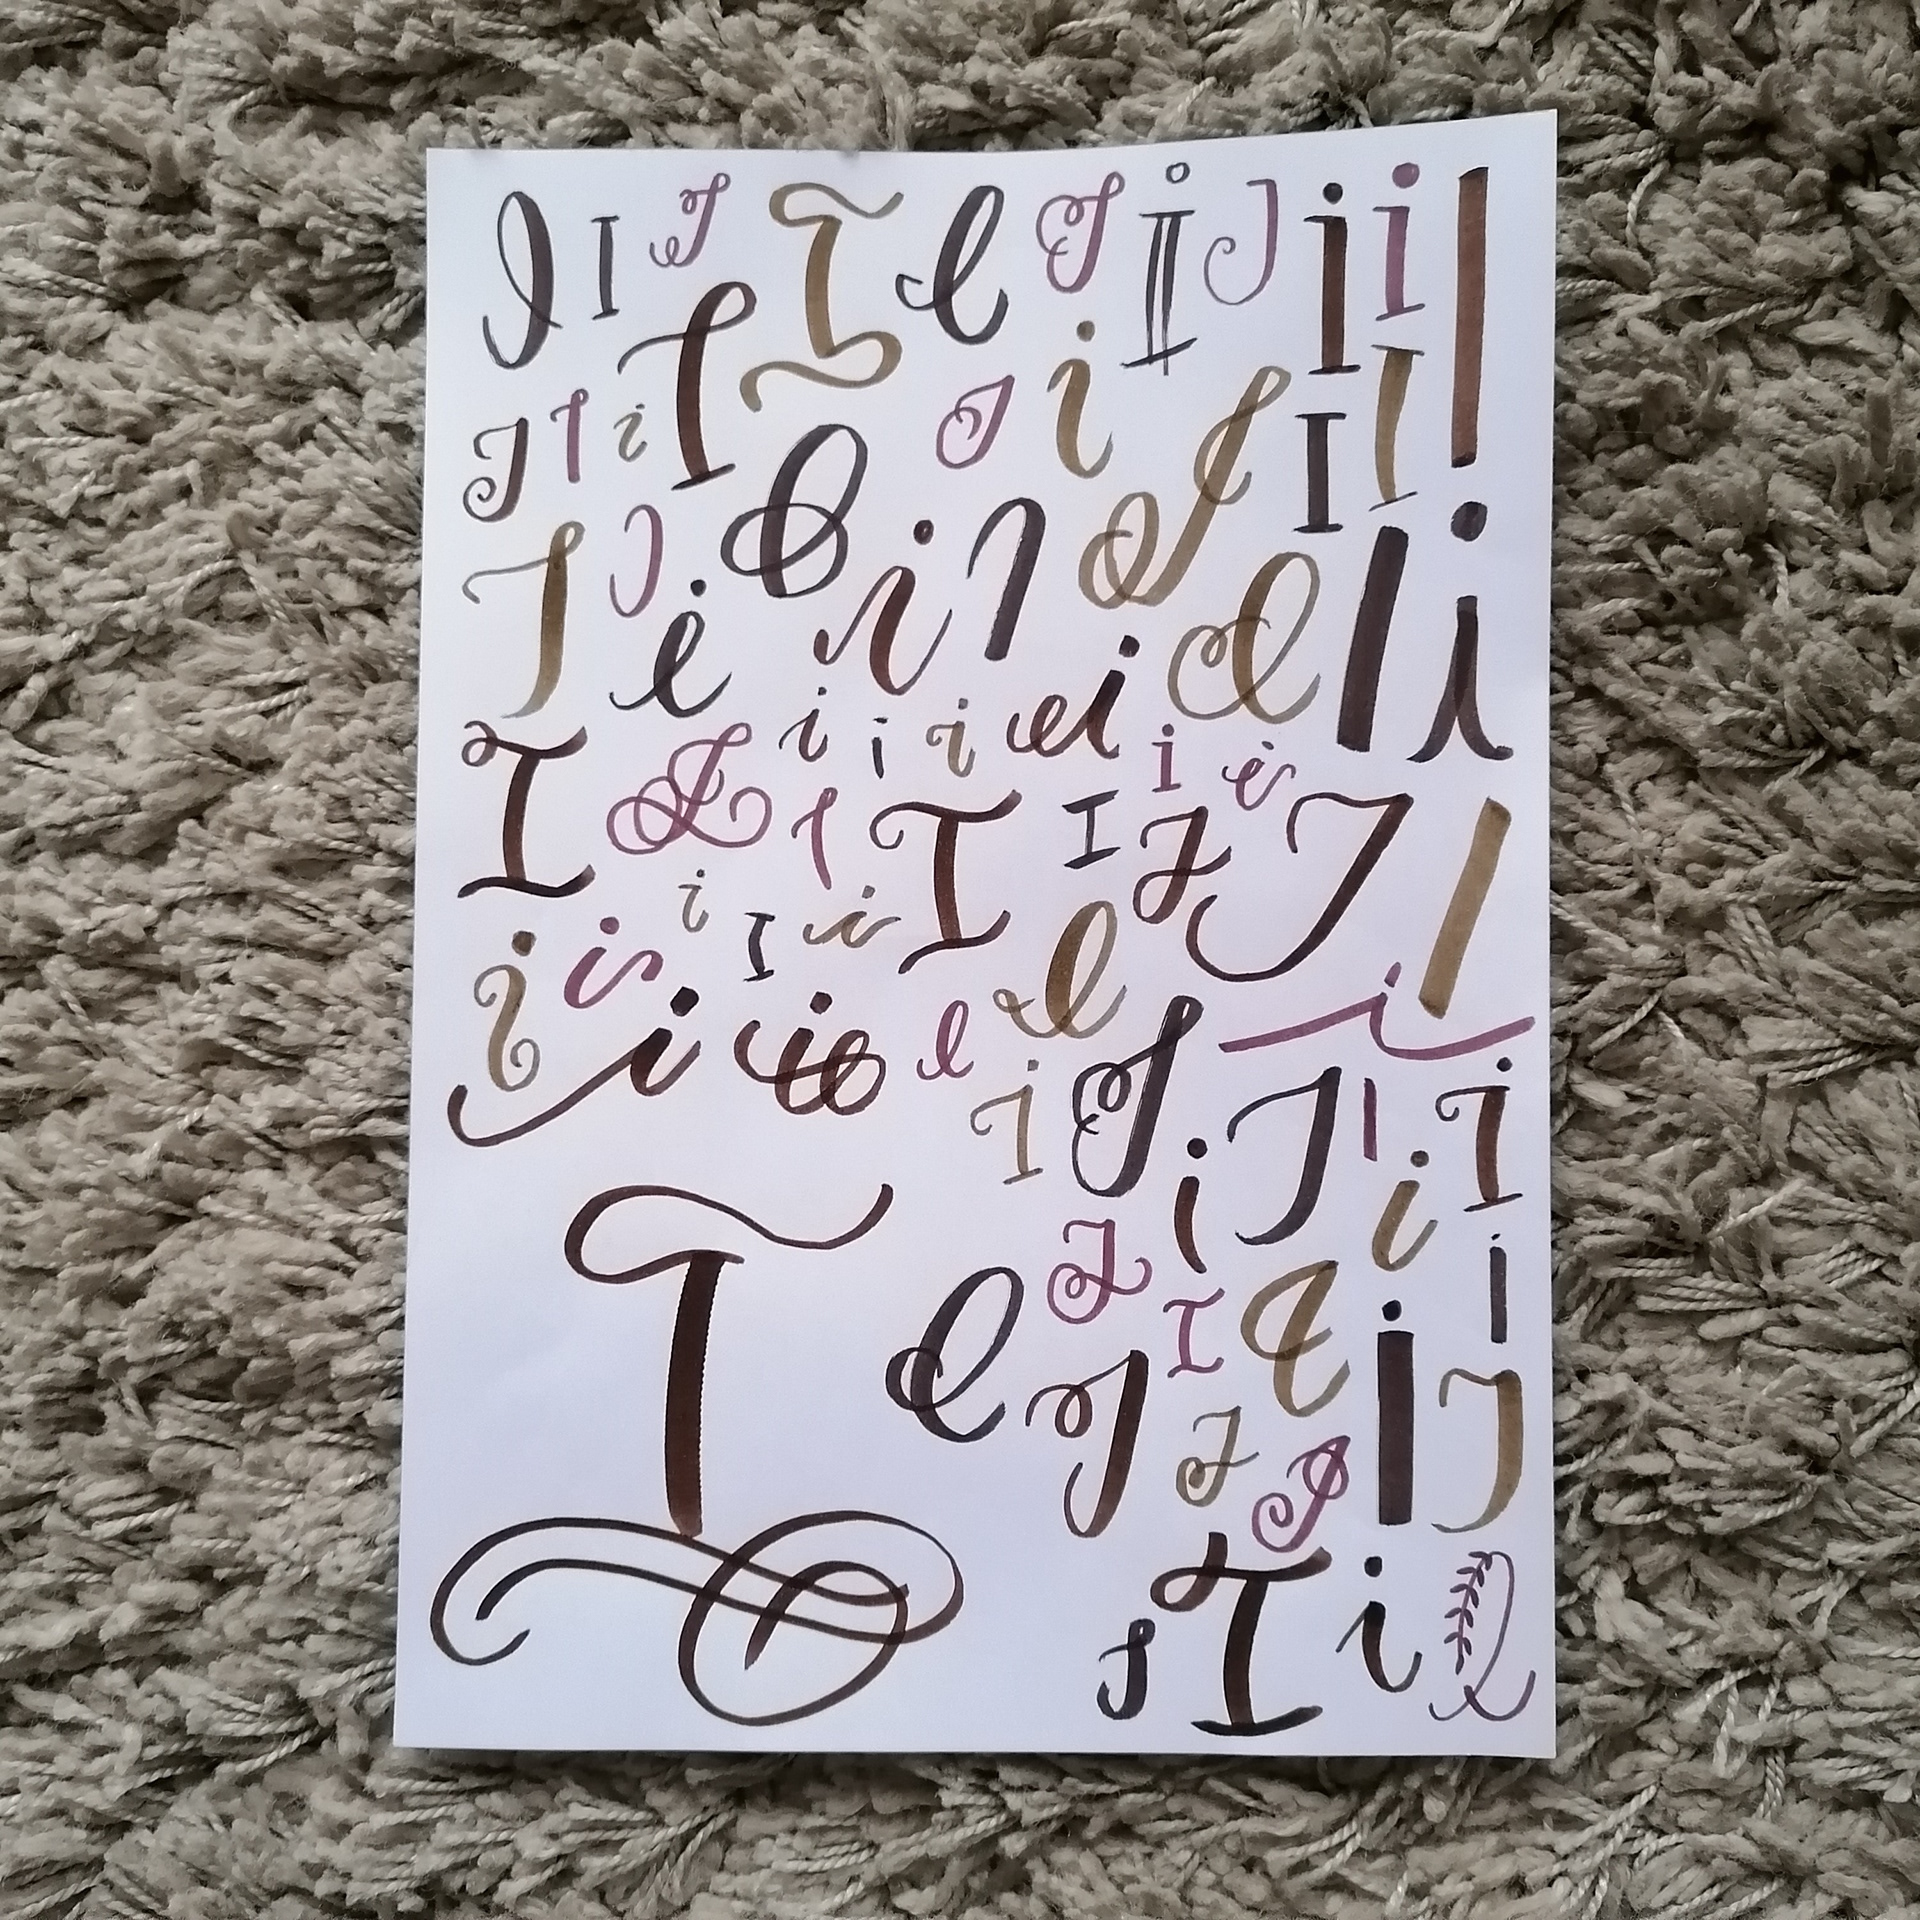 I I I I I I i I i i I
I I i I I i I I I
I I I i i I I I I i
I I I i i i i i i i
I I I I I I
i i i I i I I i
i i I i I I I i
I i I I I i i i
I I I I I i I
I I I i I
I I i I